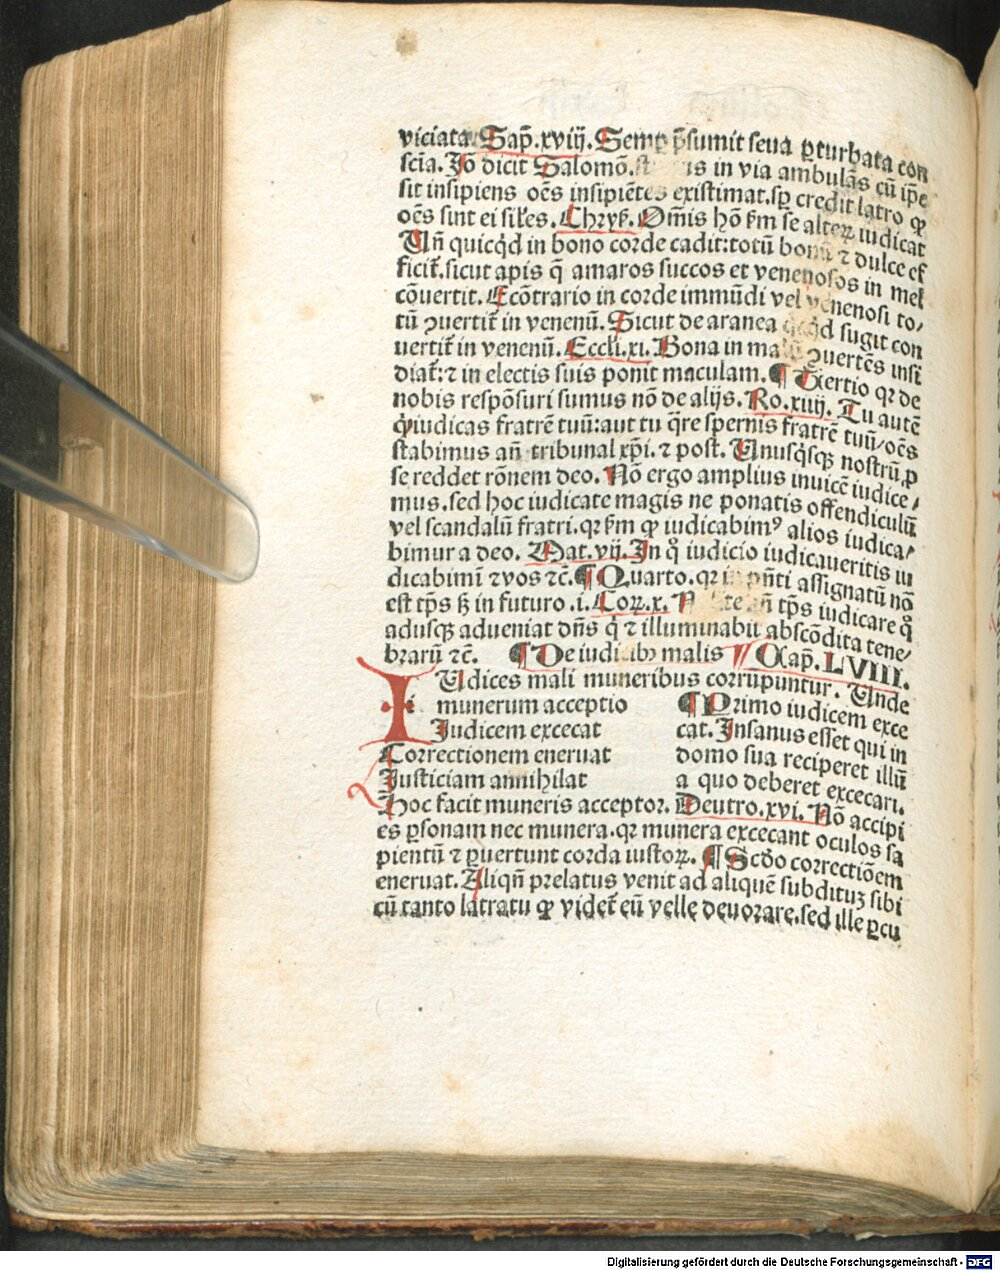 viciata. Sap̄. xviij. Semꝑ p̄sumit seua ꝑturbata con
scīa. Jō dicit Salomō. in via ambulās cū ip̄e
sit insipiens oēs insipiētes existimat. sꝑ credit latro ꝙ
oēs sint ei sil̕es. Chryẜ. Om̄is hō ẜm se alterꝝ iudicat
Un̄ quicq̇d in bono corde cadit: totū bonū ⁊ dulce ef
ficit᷑. sicut apis q̄ amaros succos et venenosos in mel
cōuertit. Ecōtrario in corde immūdi vel venenosi to⸗
tū ꝯuertit᷑ in venenū. Sicut de aranea sugit con
uertit᷑ in venenū. Eccl̕i. xi. Bona in mala ꝯuertēs insi
diat᷑: ⁊ in electis suis ponit maculam. ¶ Tertio qꝛ de
nobis respōsuri sumus nō de alijs. Ro. xiiij. Tu autē
q̇ iudicas fratrē tuū: aut tu q̄re spernis fratrē tuū/ oēs
stabimus an̄ tribunal xp̄i. ⁊ post. Unusq̇sqꝫ nostrū ꝓ
se reddet rōnem deo. Nō ergo amplius inuicē iudice⸗
mus. sed hoc iudicate magis ne ponatis offendiculū
vel scandalū fratri. qꝛ ẜm ꝙ iudicabimꝰ alios iudica⸗
bimur a deo. Mat. vij. In q̊ iudicio iudicaueritis iu
dicabimī ⁊ vos ⁊c̄. ¶ Quarto. qꝛ in p̄nti assignatū nō
est tp̄s ẜ in futuro .i. Corꝝ. x. an̄ tp̄s iudicare q̊
adusqꝫ adueniat dn̄s q̇ ⁊ illuminabit abscōdita tene⸗
brarū ⁊c̄. ¶ De iudicibꝫ malis Cap̄. LVIII.
IUdices mali muneribus corrūpuntur. Unde
munerum acceptio ¶ Primo iudicem exce
Judicem excecat cat. Insanus esset qui in
Correctionem eneruat domo sua reciperet illū
Justiciam annihilat a quo deberet excecari.
Hoc facit muneris acceptor. Deutro. xvi. Nō accipi
es ꝑsonam nec munera. qꝛ munera excecant oculos sa
pientū ⁊ ꝑuertunt corda iustoꝝ. ¶ Scd̄o correctiōem
eneruat. Aliqn̄ prelatus venit ad aliquē subdituꝫ sibi
cū tanto latratu ꝙ videt᷑ eū velle deuorare. sed ille ꝑcu
Digitalisierung gefördert durch die Deutsche Forschungsgemeinschaft - DFG